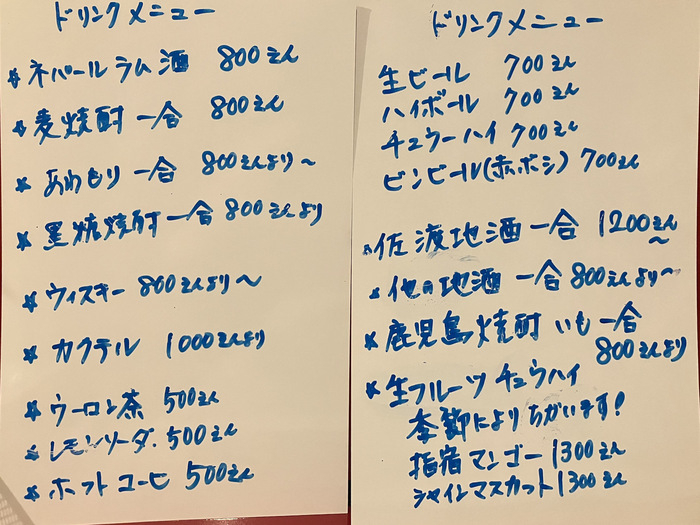 ドリンクメニュー
☆ネパールラム酒 800えん
☆麦焼酎 一合 800えん
☆あわもり 一合 800えんより〜
☆黒糖焼酎 一合 800えんより
☆ウィスキー 800えんより〜
☆カクテル 1000えんより
☆ウーロン茶 500えん
☆レモンソーダ. 500えん
☆ホットコーヒ 500えん
ドリンクメニュー
生ビール 700えん
ハイボール 700えん
チュウーハイ 700えん
ビンビール(赤ボシ) 700えん
☆佐渡地酒 一合 1200えん〜
☆他の地酒 一合 800えんより〜
☆鹿児島焼酎 いも 一合
800えんより
☆生フルーツ チュウハイ
季節によりちがいます!
指宿マンゴー 1300えん
シャインマスカット 1300えん